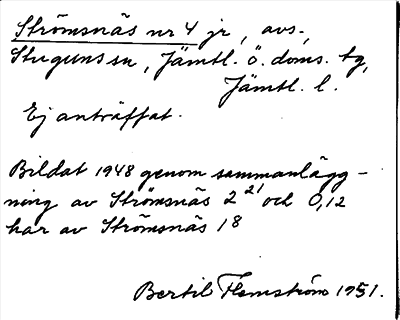 Strömsnäs nr 4 jr, avs.,
Stuguns sn, Jämtl. ö. doms. tg,
Jämtl. l.
Ej anträffat.
Bildat 1948 genom sammanlägg-
ning av Strömsnäs 2²¹ och 0,12
har av Strömsnäs 18
Bertil Flemström 1951.